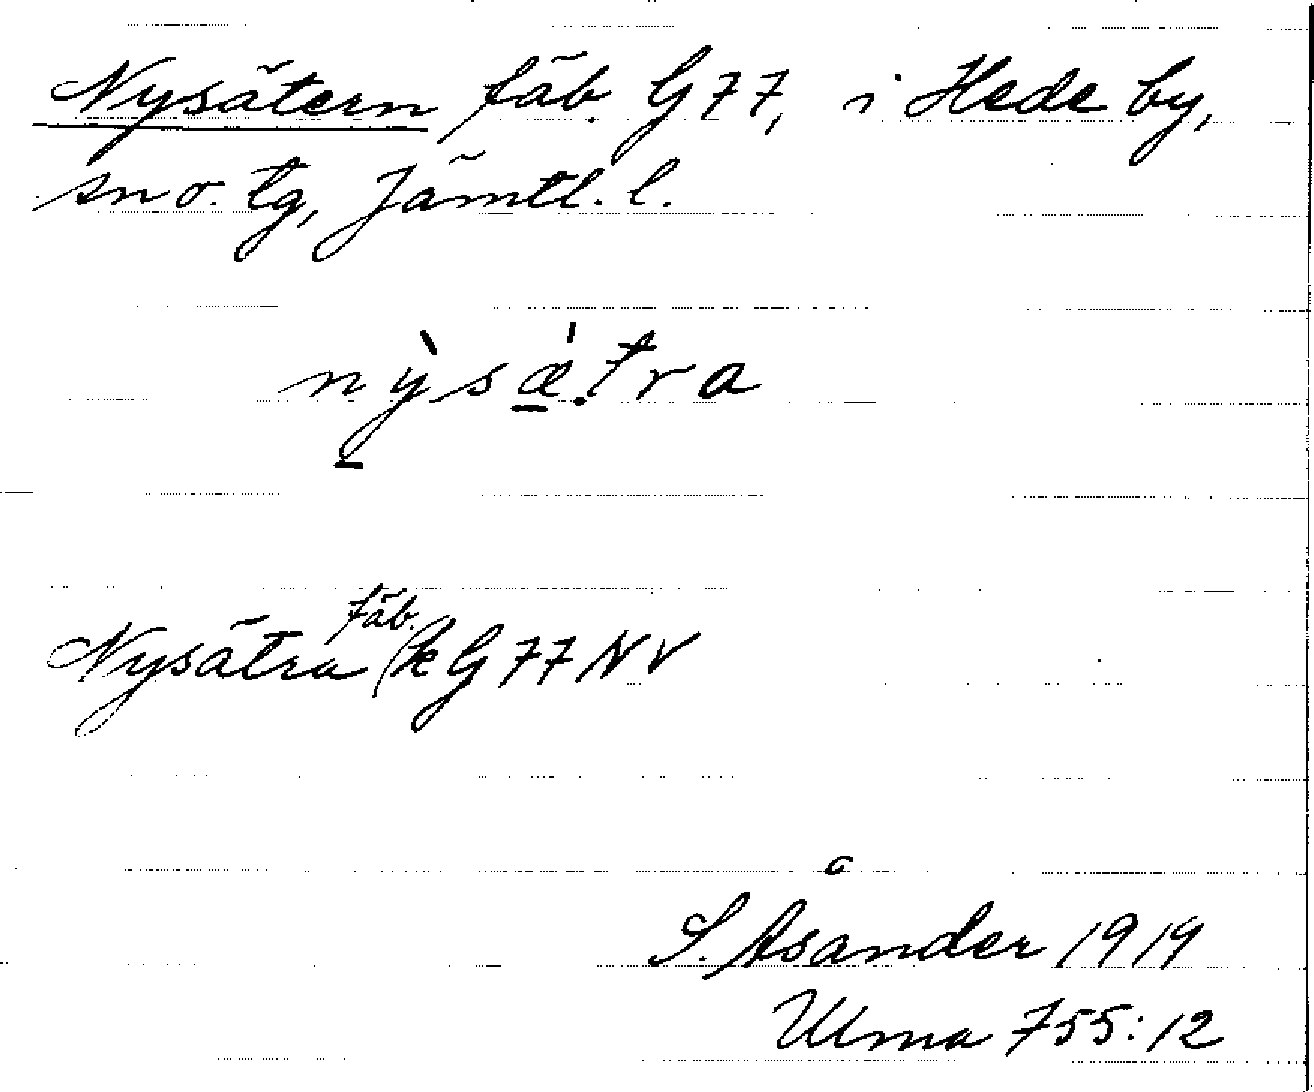 Nysätern fäb. G 77, i Hede by,
sn o. tg, Jämtl. l.
nỳsæ̀.tra
Nysätra fäb. (k G 77 NV
S. Åsander 1919
Ulma 755:12